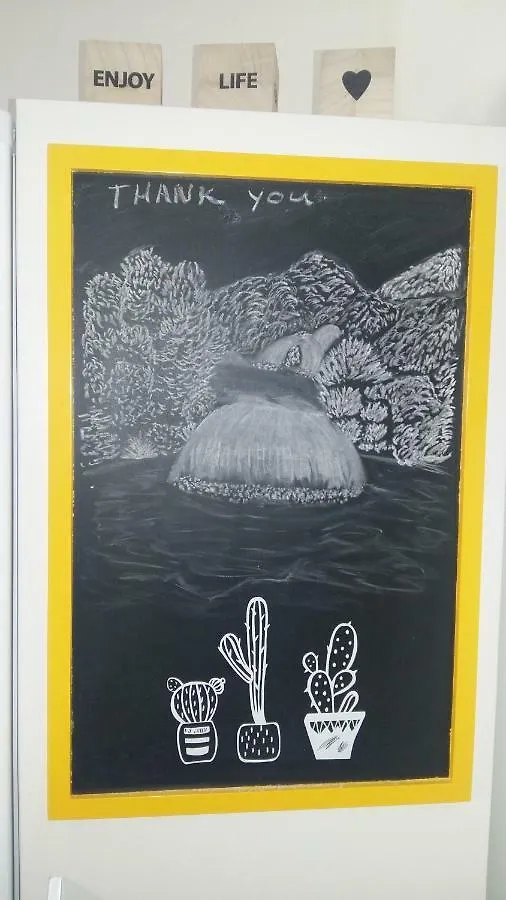 ENJOY LIFE
THANK YOU